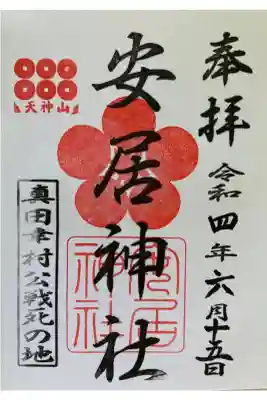 奉拝
令和四年六月十五日
安居神社
安居神社
天神山
真田幸村公戦死の地